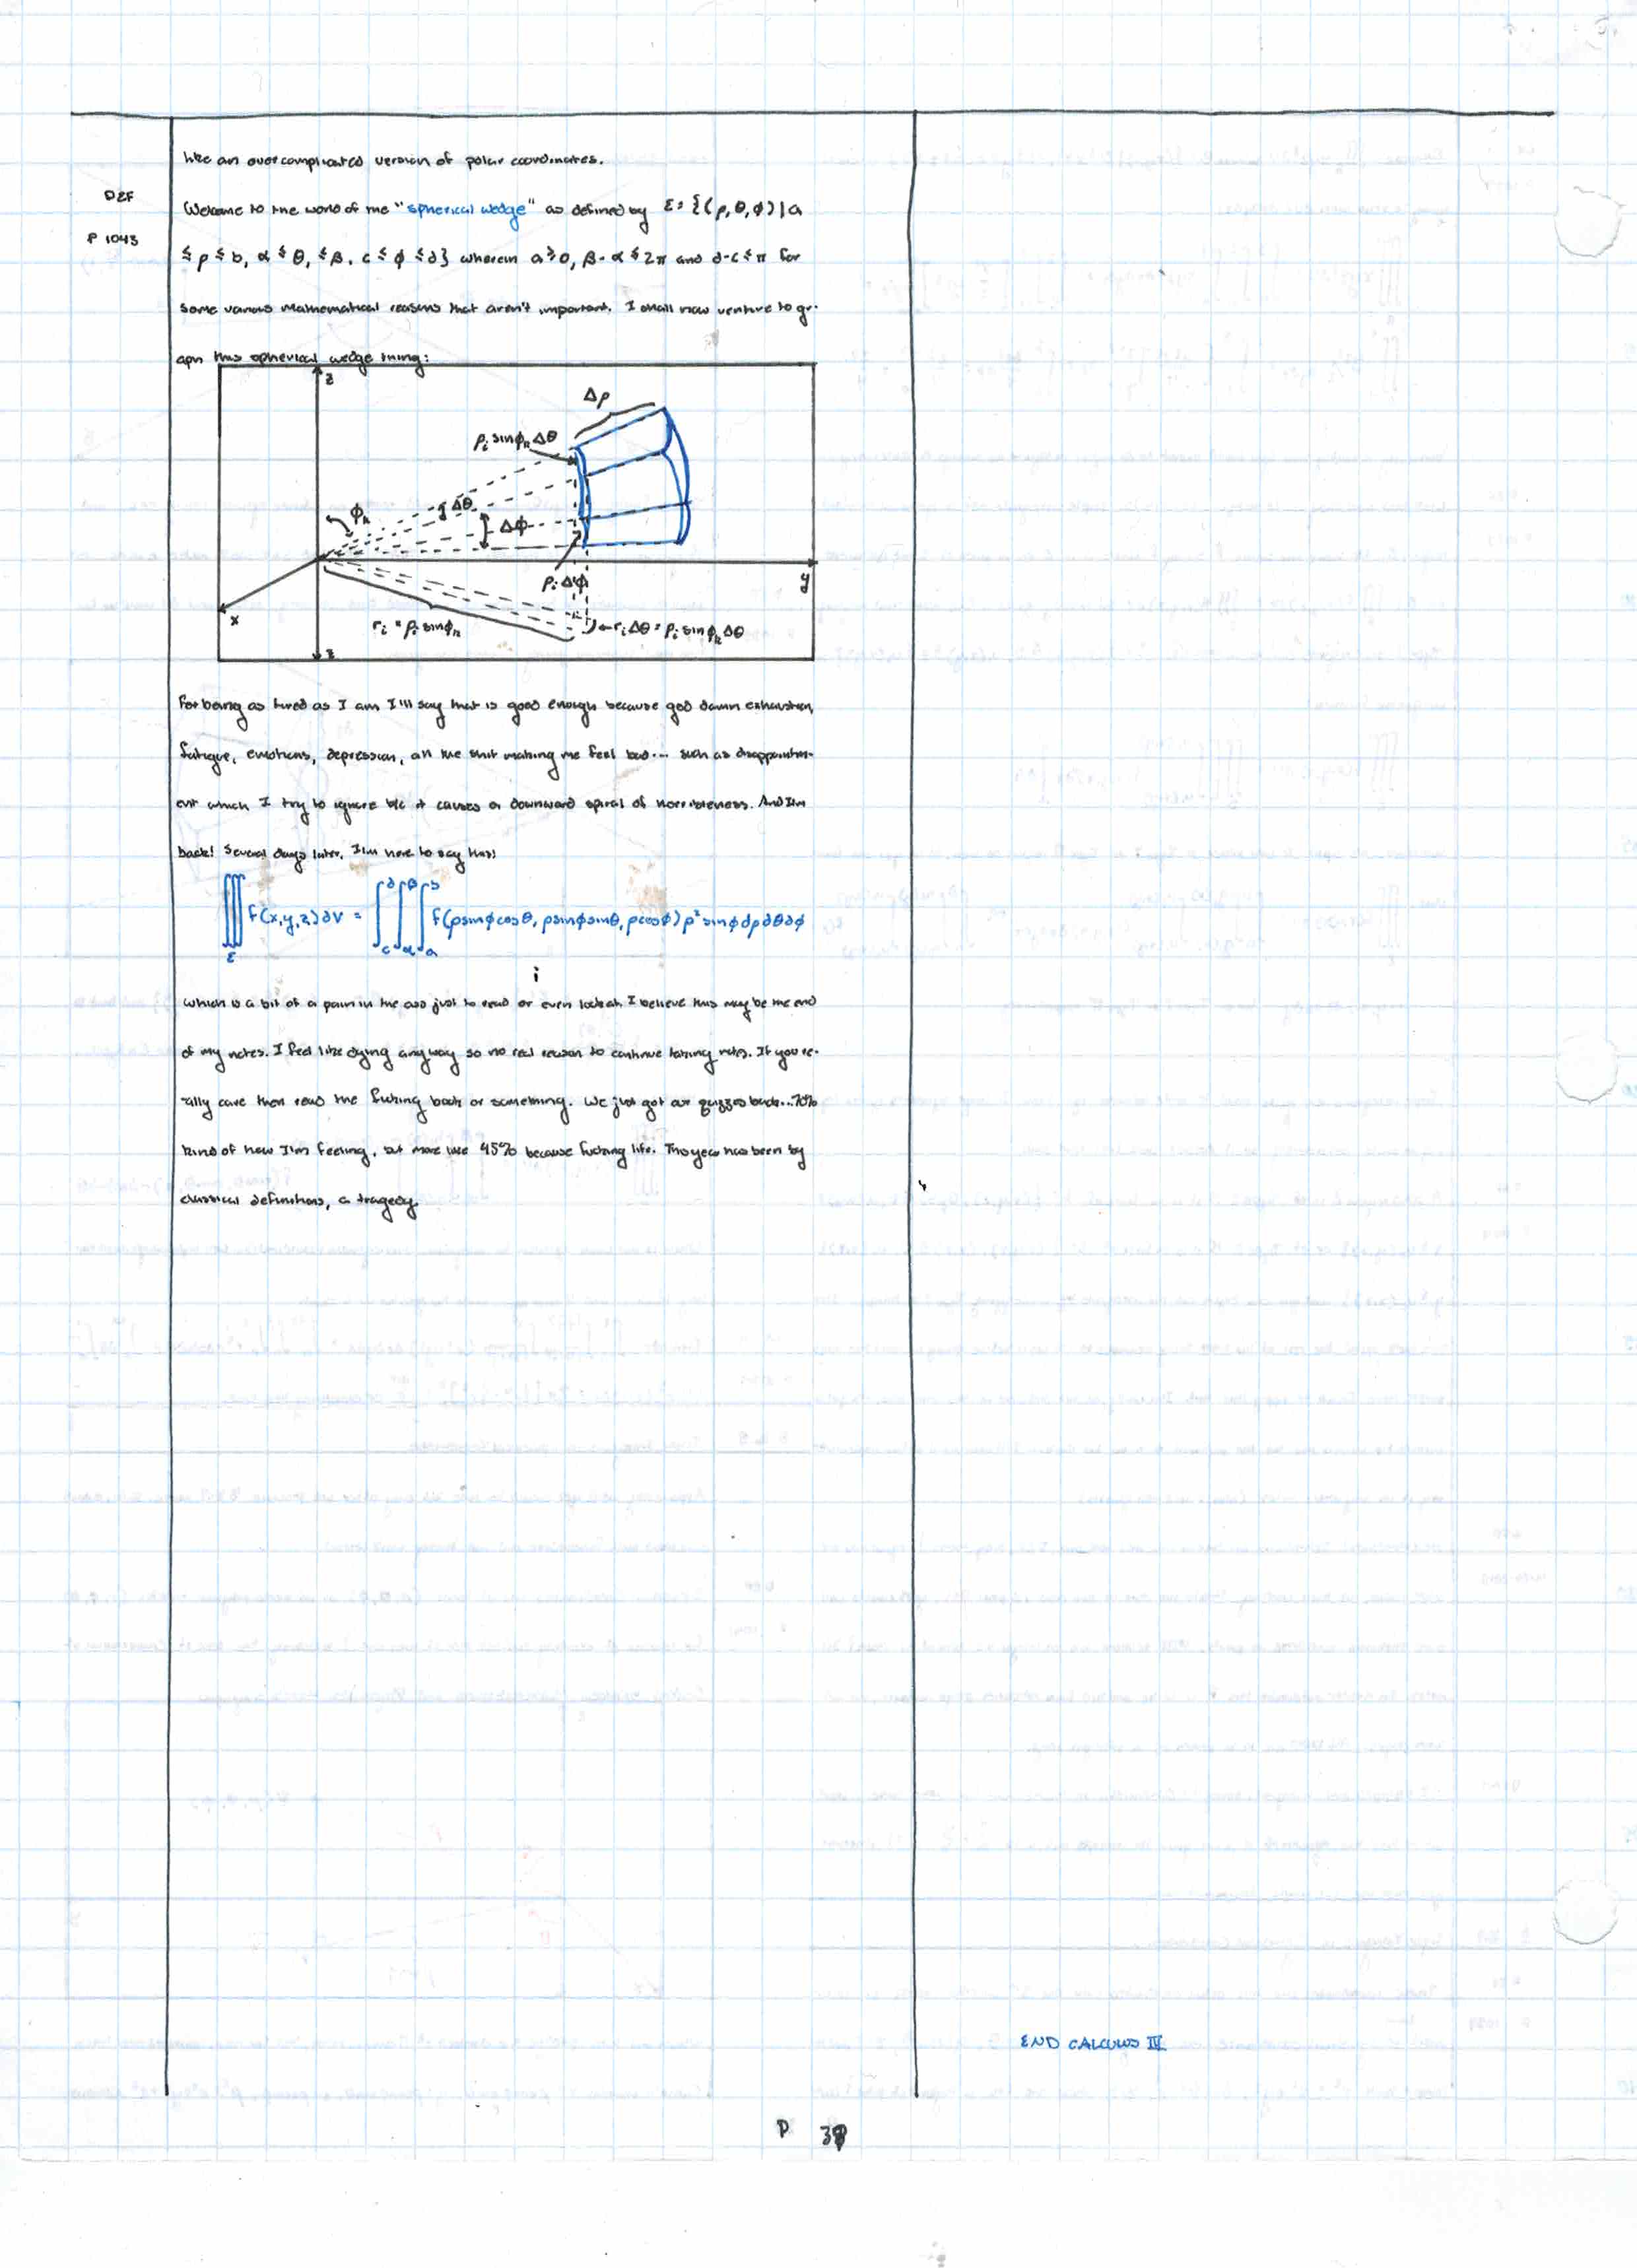 like an overcomplicated version of polar coordinates.
DEF
Welcome to the world of the "spherical wedge" as defined by E = {(ρ, θ, φ) | a
P 1043
≤ ρ ≤ b, α ≤ θ, ≤ β, c ≤ φ ≤ d} wherein a ≥ 0, β - α ≤ 2π and d - c ≤ π for
some various mathematical reasons that aren't important. I shall now venture to gr-
aph this spherical wedge thing:
z
Δρ
ρᵢ sinφₖ Δθ
φₖ
Δθ
Δφ
ρᵢ Δφ
y
x
rᵢ = ρᵢ sinφₖ
rᵢ Δθ = ρᵢ sinφₖ Δθ
z
For being as tired as I am I'll say that is good enough because god damn exhaustion,
fatigue, emotions, depression, all the shit making me feel bad... such as disappointm-
ent which I try to ignore b/c it causes a downward spiral of horribleness. And I'm
back! Several days later, I'm here to say this:
∭_E f(x,y,z)dV = ∫_c^d ∫_α^β ∫_a^b f(ρsinφcosθ, ρsinφsinθ, ρcosφ) ρ² sinφ dρ dθ dφ
i
which is a bit of a pain in the ass just to read or even look at. I believe this may be the end
of my notes. I feel like dying anyway so no real reason to continue taking notes. If you re-
ally care then read the fucking book or something. We just got our quizzes back... 70%
kind of how I'm feeling, but more like 45% because fucking life. This year has been by
classical definitions, a tragedy.
END CALCULUS IV
P 38